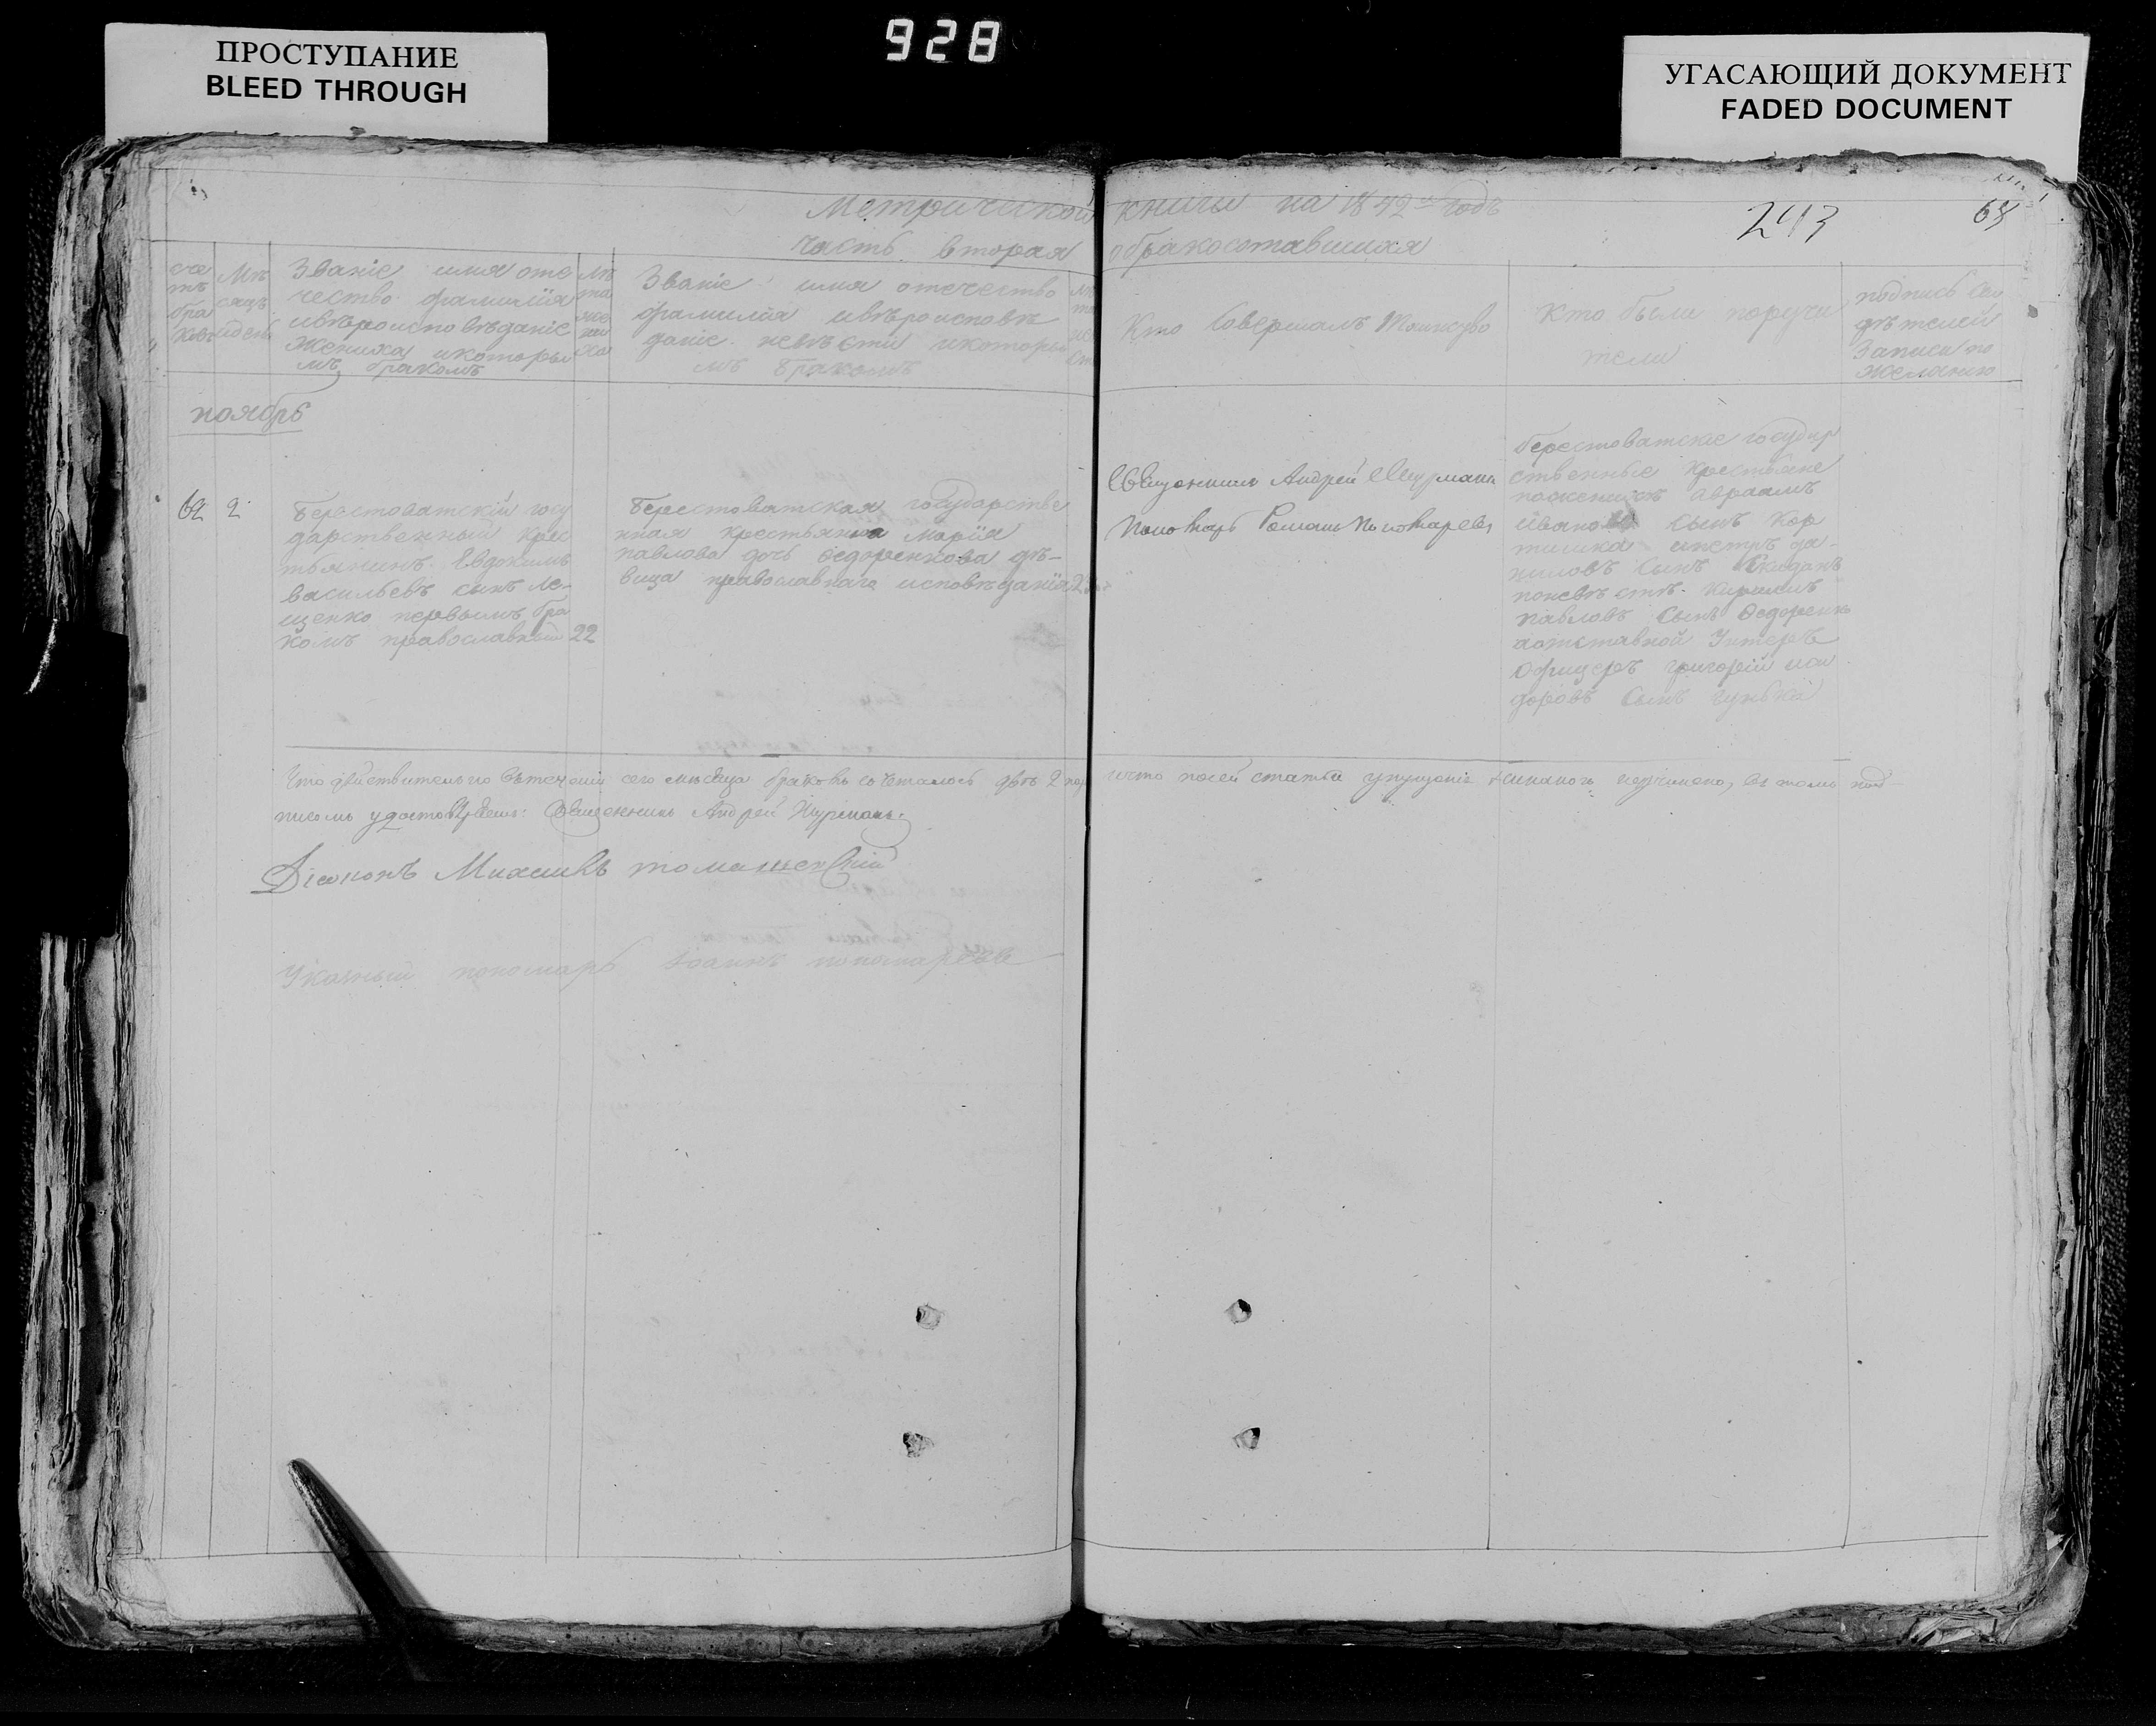 928
ПРОСТУПАНИЕ
BLEED THROUGH
УГАСАЮЩИЙ ДОКУМЕНТ
FADED DOCUMENT
Метрической книги на 1842й годъ
243
68
часть вторая о бракосотавшихся
сче
тъ
бра
ковъ
Мѣ
сяцъ
идень
Званіе имя оте
чество фамилія
ивѣроисповѣданіе
жениха икоторы
мъ бракомъ
лѣ
та
же
ни
ха
Званіе имя отечество
фамилія ивѣроисповѣ
даніе невѣсти икоторы
мъ бракомъ
Кто Совершалъ Таинство
Кто были поручи
тели
подпись сви
дѣтелей
Записи по
желанию
ноябрь
62 2
Берестоватскій госу
дарственный крес
тьянинъ Евдокимъ
васильевъ сынъ ле-
щенко первымъ бра
комъ православный 22
Берестоватская государстве
нная крестьянка марія
павлова дочь Ѳедоренкова дѣ-
вица православнаго исповѣданія
Священникъ Андрей
Пономарь Романъ Пономаревъ
берестоватскіе государ
ственные крестьяне
поженихѣ авраамъ
Ивановъ сынъ Кор
ипетръ да-
ниловъ сынъ
поневѣстѣ Кирилъ
павловъ Сынъ Ѳедоренко
иотставной Унтеръ
Офицеръ григорій иси
доровъ Сынъ
Что дѣйствительно втеченіи сего мѣсяца браковъ сочеталось два 2 ичто посей статьи упущенія никакого неучинено, въ томъ под-
писомъ удостовѣряемъ: Священникъ Андрей
Діаконъ Михаилъ томашевскій
Указный пономарь Іоаннъ пономаревъ